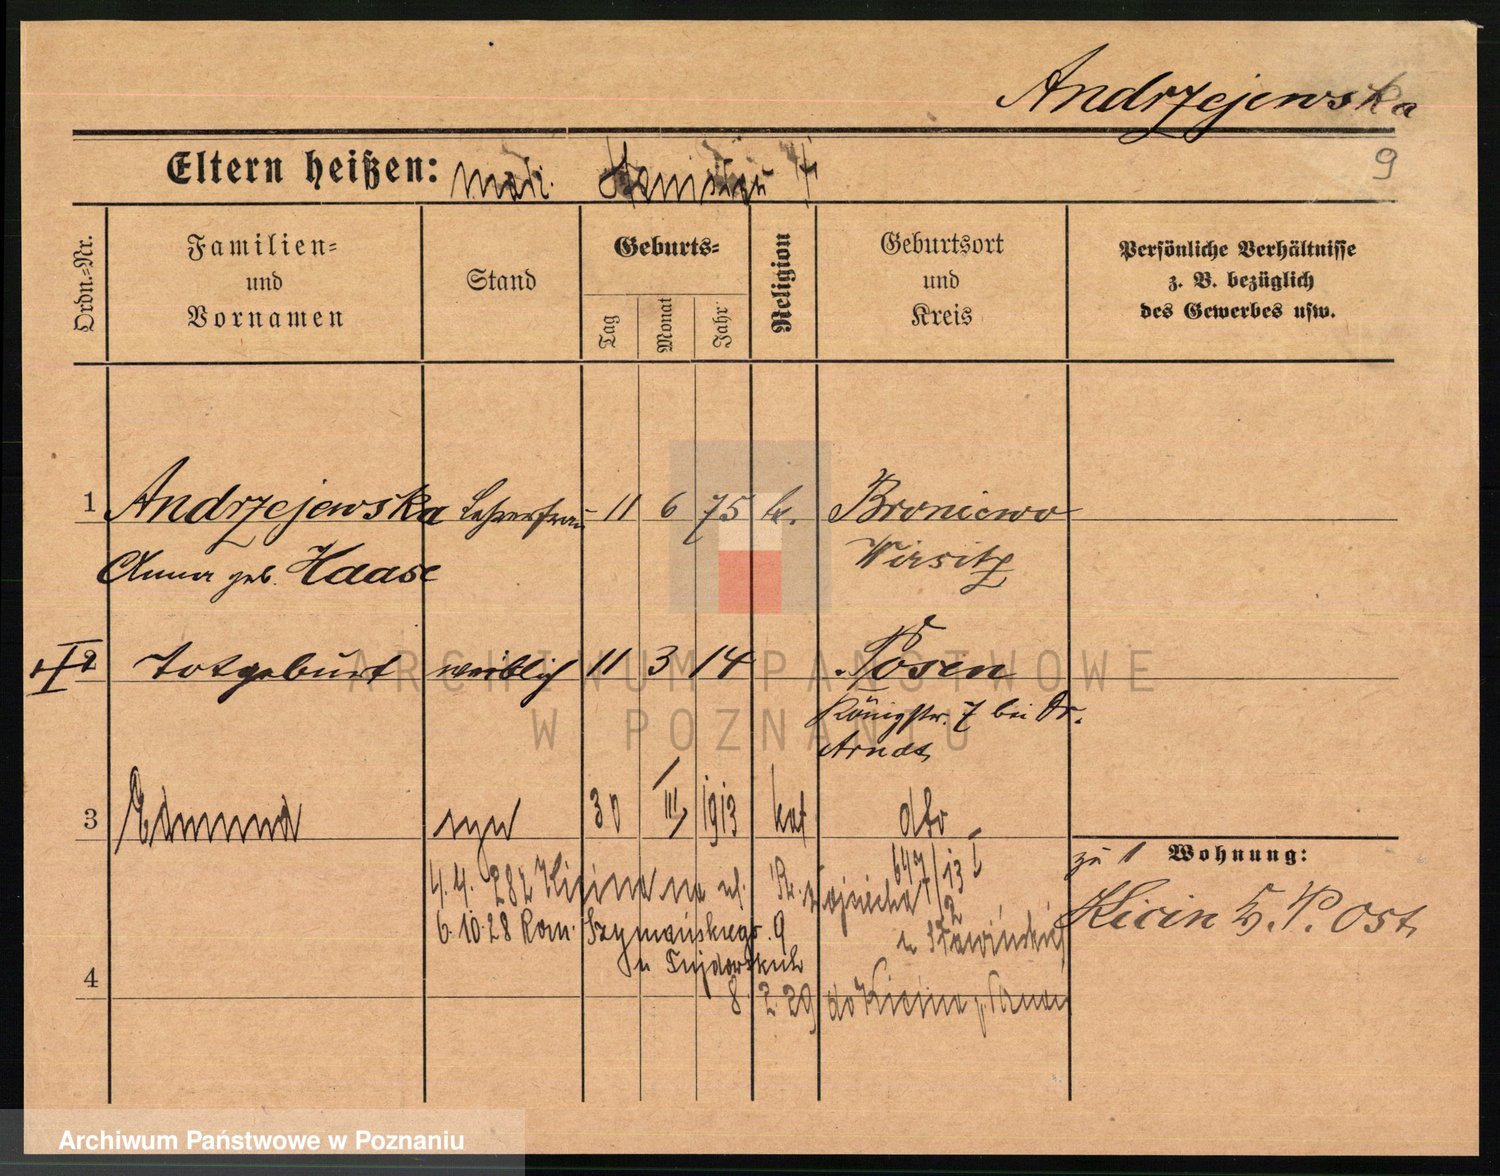 Andrzejewska
9
Eltern heißen:
Ordn.-Nr.
Familien-
und
Vornamen
Stand
Geburts-
Tag
Monat
Jahr
Religion
Geburtsort
und
Kreis
Persönliche Verhältnisse
z. B. bezüglich
des Gewerbes usw.
1 Andrzejewska Lehrerfrau 11 6 75 k. Broniewo
Anna geb. Haase Wirsitz
2 Totgeburt weiblich 11 3 14 Posen
Königstr. 7 bei Dr.
Arndt
3 Edmund syn 30 III 1913 kat dto
647/13 I
zu 1 Wohnung:
Kicin Kr. P. Ost.
4.4.28 z Kicina na ul. Św. Wojciecha 2
u Sławińskich
6.10.28 Rom. Szymańskiego 9
u
4
8.2.29 do Kicina p. Poznań
ARCHIWUM PAŃSTWOWE
W POZNANIU
Archiwum Państwowe w Poznaniu